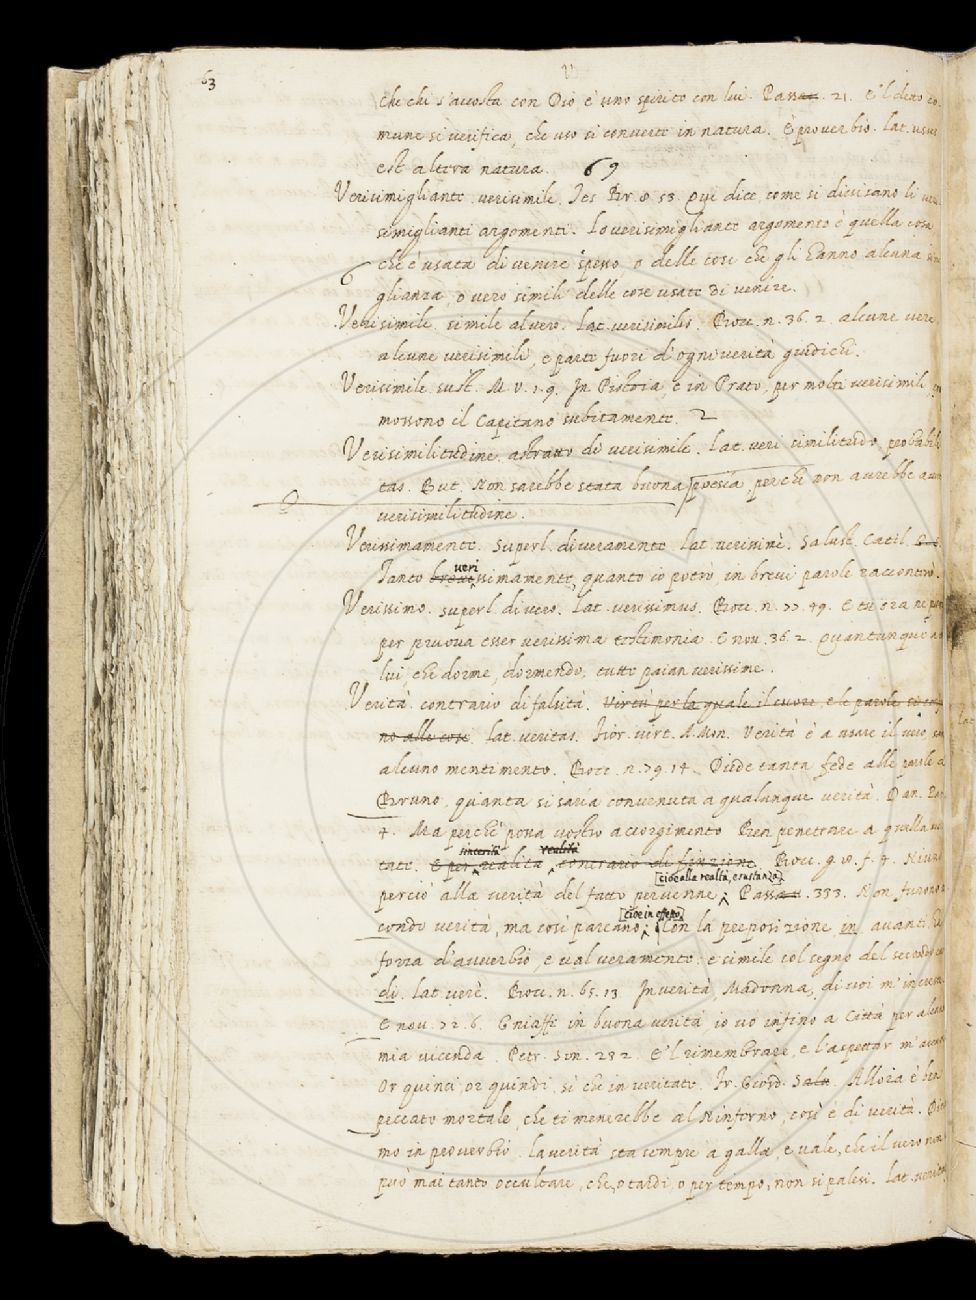 63
V
che chi s'accosta con Dio è uno spirito con lui. Passa. 21. E'l detto co-
mune si verifica, che uso si converte in natura. È proverbio. Lat. usus
est altera natura. 69
Verisimigliante. verisimile. Tes. Br. 8. 53. Qui dice come si divisano li veri
simiglianti argomenti. Lo verisimigliante argomento è quella cosa
che è usata di venire spesso, o delle cose che gli hanno alcuna simi
6 glianza, o vero simili delle cose usate di venire.
Verisimile. simile al vero. Lat. verisimilis. Bocc. n. 36. 2. alcune vere,
alcune verisimili, e parte fuori d'ogni verità giudichi.
Verisimile sust. M. V. 1. 9. In Pistoia, e in Prato, per molti verisimili
mossono il Capitano subitamente. 2
Verisimilitudine. astratto di verisimile. Lat. veri similitudo, probabili
tas. But. Non sarebbe stata buona poesia, perchè non avrebbe avuto
verisimilitudine.
Verissimamente. Superl. di veramente. Lat. verissimè. Salust. Catil.
Tanto verissimamente, quanto io potrò, in brevi parole racconterò.
Verissimo. superl. di vero. Lat. verissimus. Bocc. n. 77. 49. E tu ora ne puoi
per pruova esser verissima testimonia. E nov. 36. 2. Quantunque a
lui, che dorme, dormendo, tutte paian verissime.
Verità. contrario di falsità. virtù per la quale il cuore, e le parole si ten
no alle cose. Lat. veritas. Fior. virt. A. Mon. Verità è a usare il vero, san
alcuno mentimento. Bocc. n. 79. 14. Diede tanta fede alle parole di
Bruno, quanta si saria convenuta a qualunque verità. Dan. Par.
4. Ma perchè possa vostro accorgimento Ben penetrare a questa ve
sincerità realità
tate. E per realità, contrario di finzione. Bocc. g. 8. f. 4. Niuno
[cioè alla realtà, e sustanza]
perciò alla verità del fatto pervenne. Passa. 333. Non furono
[cioè in effetto]
condo verità, ma così parcano. Con la preposizione in avanti. ha
forza d'avverbio, e val veramente. e simile col segno del secondo caso
di. Lat. verè. Bocc. n. 65. 13. In verità, Madonna, di voi m'incresce.
E nov. 72. 6. Gniaffi in buona verità, io vo infino a Città per alcuna
mia vicenda. Petr. Son. 232. E'l rimembrare, e l'aspettar m'accora
Or quinci, or quindi, sì che in veritate. Fr. Giord. Salv. Allora è ben
peccato mortale, che ti menerebbe al Ninferno, così è di verità. Dicia
mo in proverbio. la verità sta sempre a galla, e vale, che il vero non
può mai tanto occultare, che, o tardi, o per tempo, non si palesi. Lat. veritas